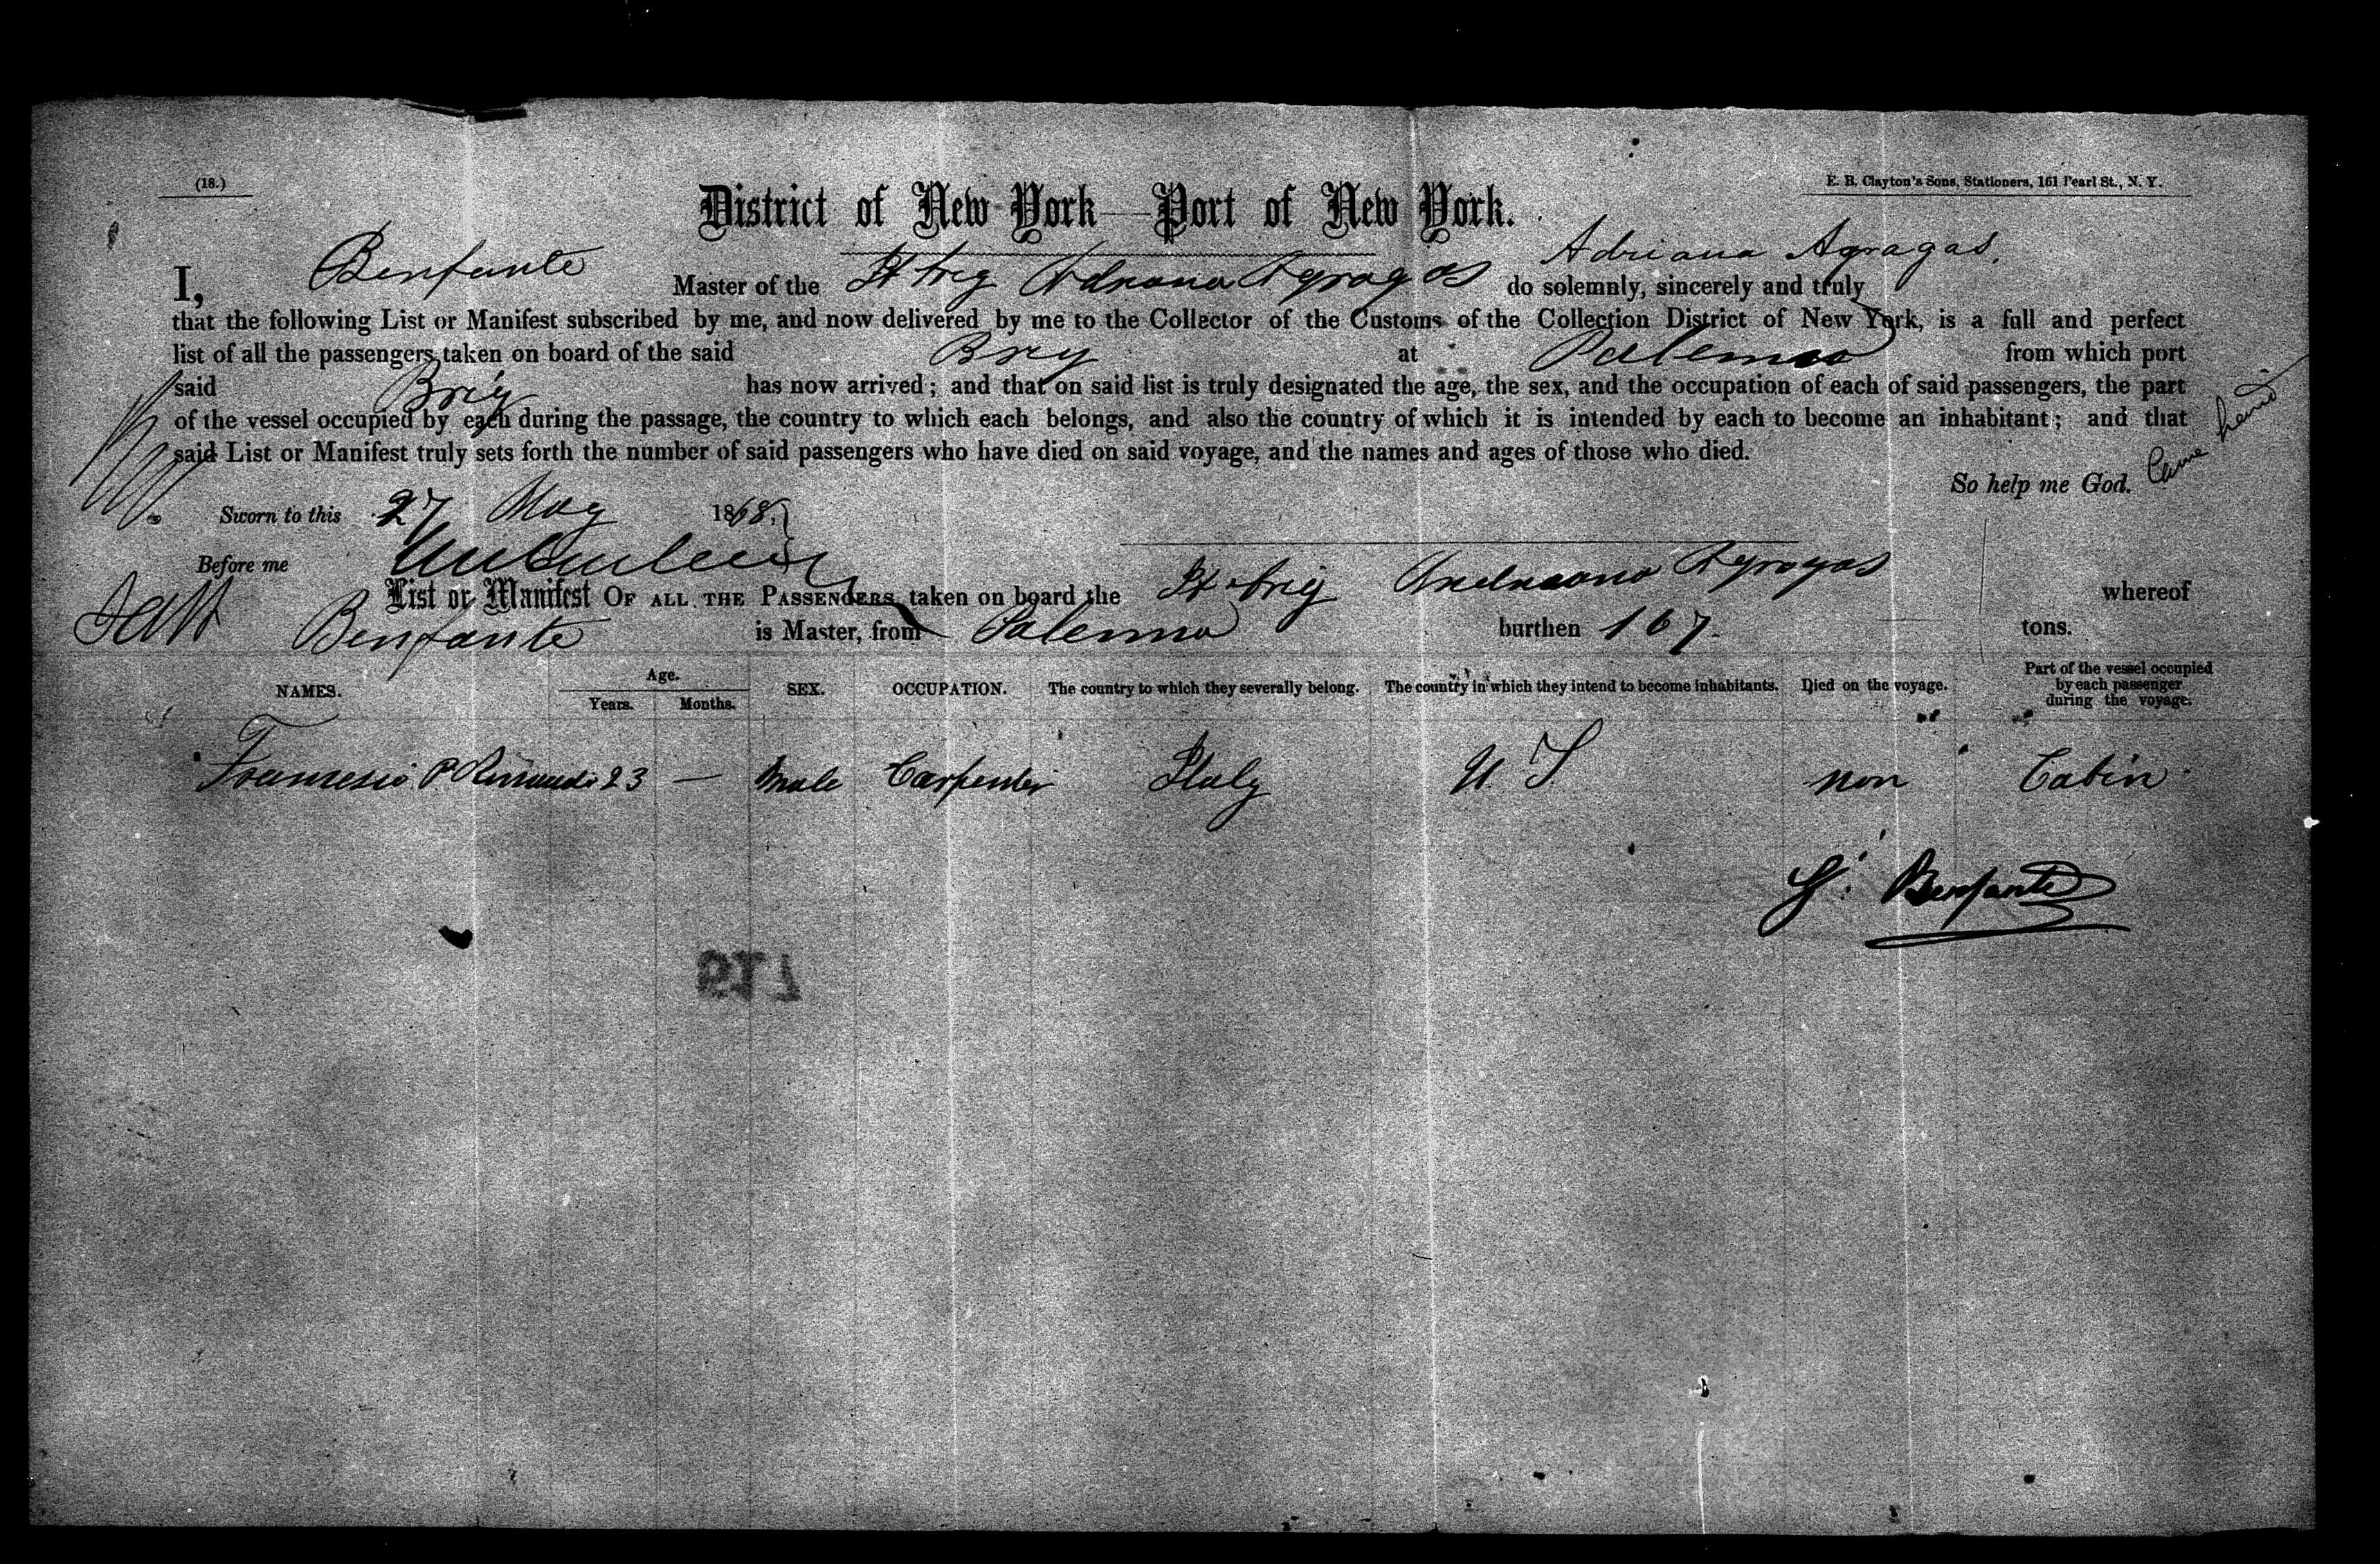 (18.)
E. B. Clayton's Sons, Stationers, 161 Pearl St., N. Y.
District of New York—Port of New York.
Adriana Agragas.
I, Benfante Master of the It brig Adriana Agragas do solemnly, sincerely and truly
that the following List or Manifest subscribed by me, and now delivered by me to the Collector of the Customs of the Collection District of New York, is a full and perfect
list of all the passengers taken on board of the said Brig at Palermo from which port
said Brig has now arrived; and that on said list is truly designated the age, the sex, and the occupation of each of said passengers, the part
of the vessel occupied by each during the passage, the country to which each belongs, and also the country of which it is intended by each to become an inhabitant; and that
said List or Manifest truly sets forth the number of said passengers who have died on said voyage, and the names and ages of those who died.
So help me God.
Sworn to this 27 May 1868.
Before me
List or Manifest OF ALL THE PASSENGERS taken on board the It brig Andreana Agragas whereof
Benfante is Master, from Palermo burthen 167 tons.
NAMES. Age. Years. Months. SEX. OCCUPATION. The country to which they severally belong. The country in which they intend to become inhabitants. Died on the voyage. Part of the vessel occupied by each passenger during the voyage.
23 — Male Carpenter Italy U S non Cabin
Benfante
517